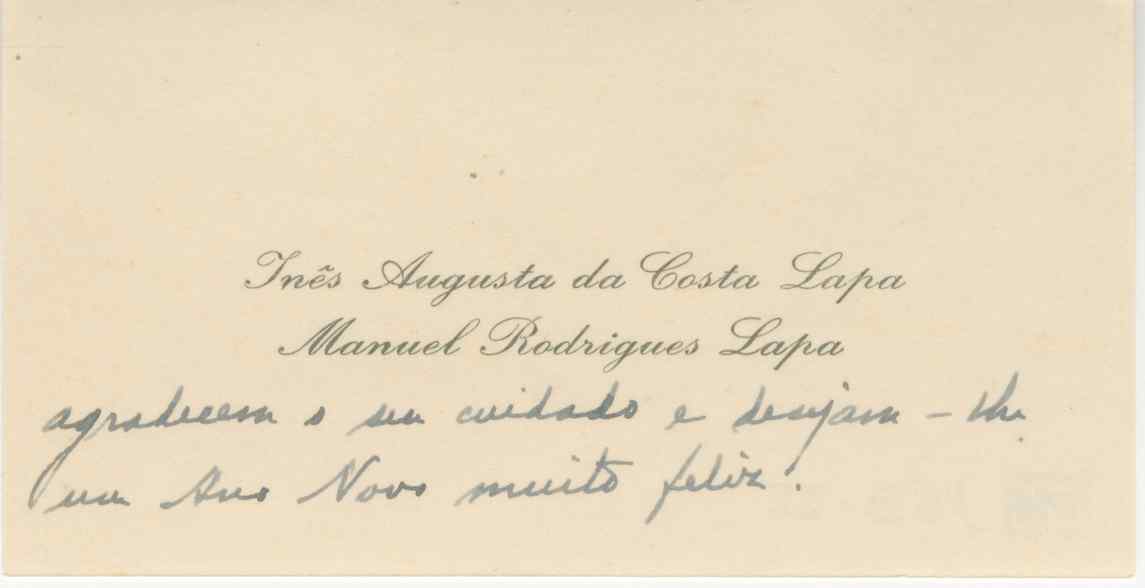 Inês Augusta da Costa Lapa
Manuel Rodrigues Lapa
agradecem o seu cuidado e desejam-lhe
um Ano Novo muito feliz.